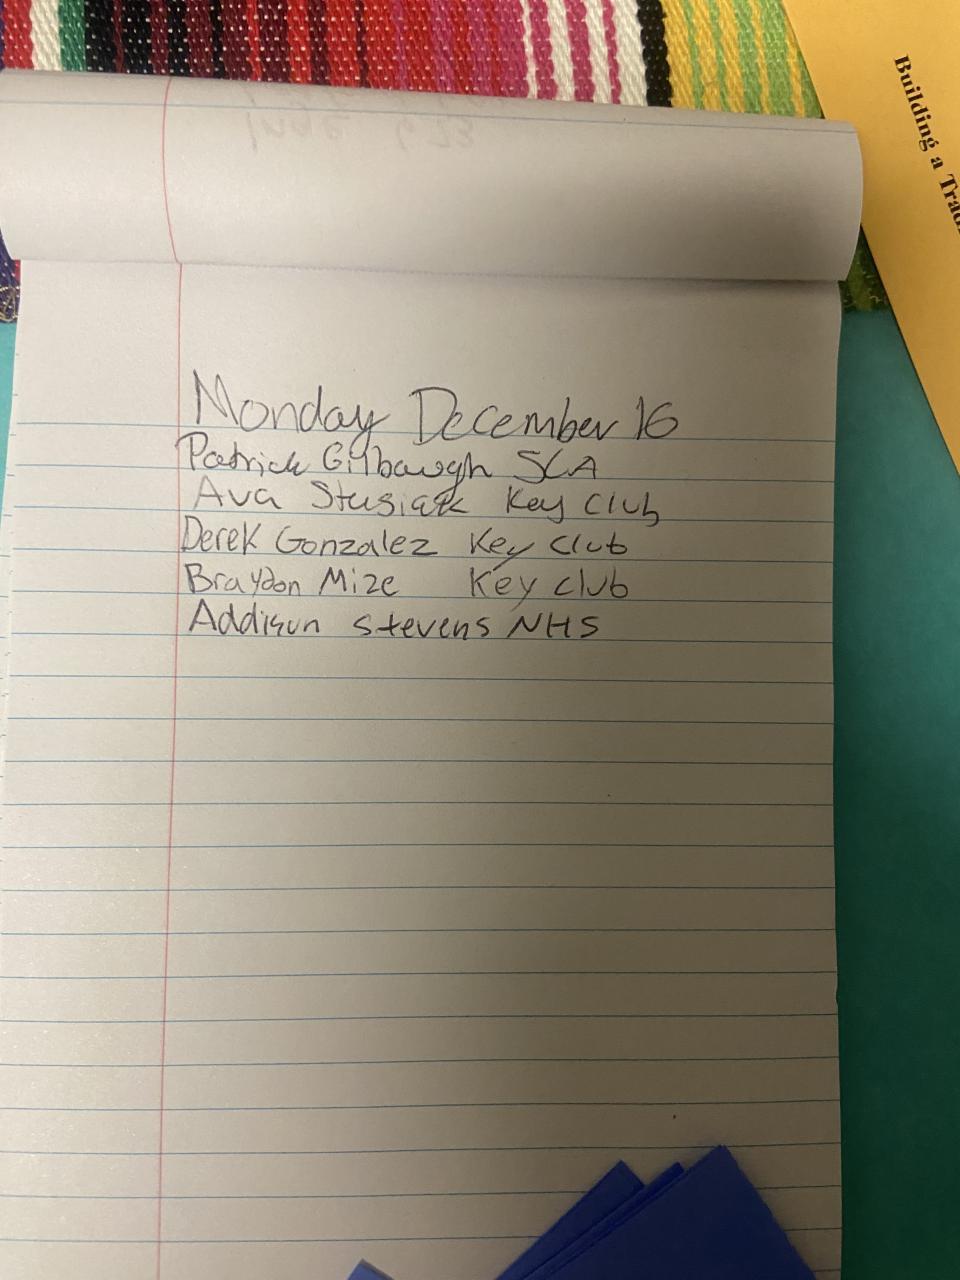 Building a
Monday December 16
Patrick Gilbaugh SCA
Ava Stusiak Key Club
Derek Gonzalez Key Club
Braydon Mize Key club
Addison Stevens NHS